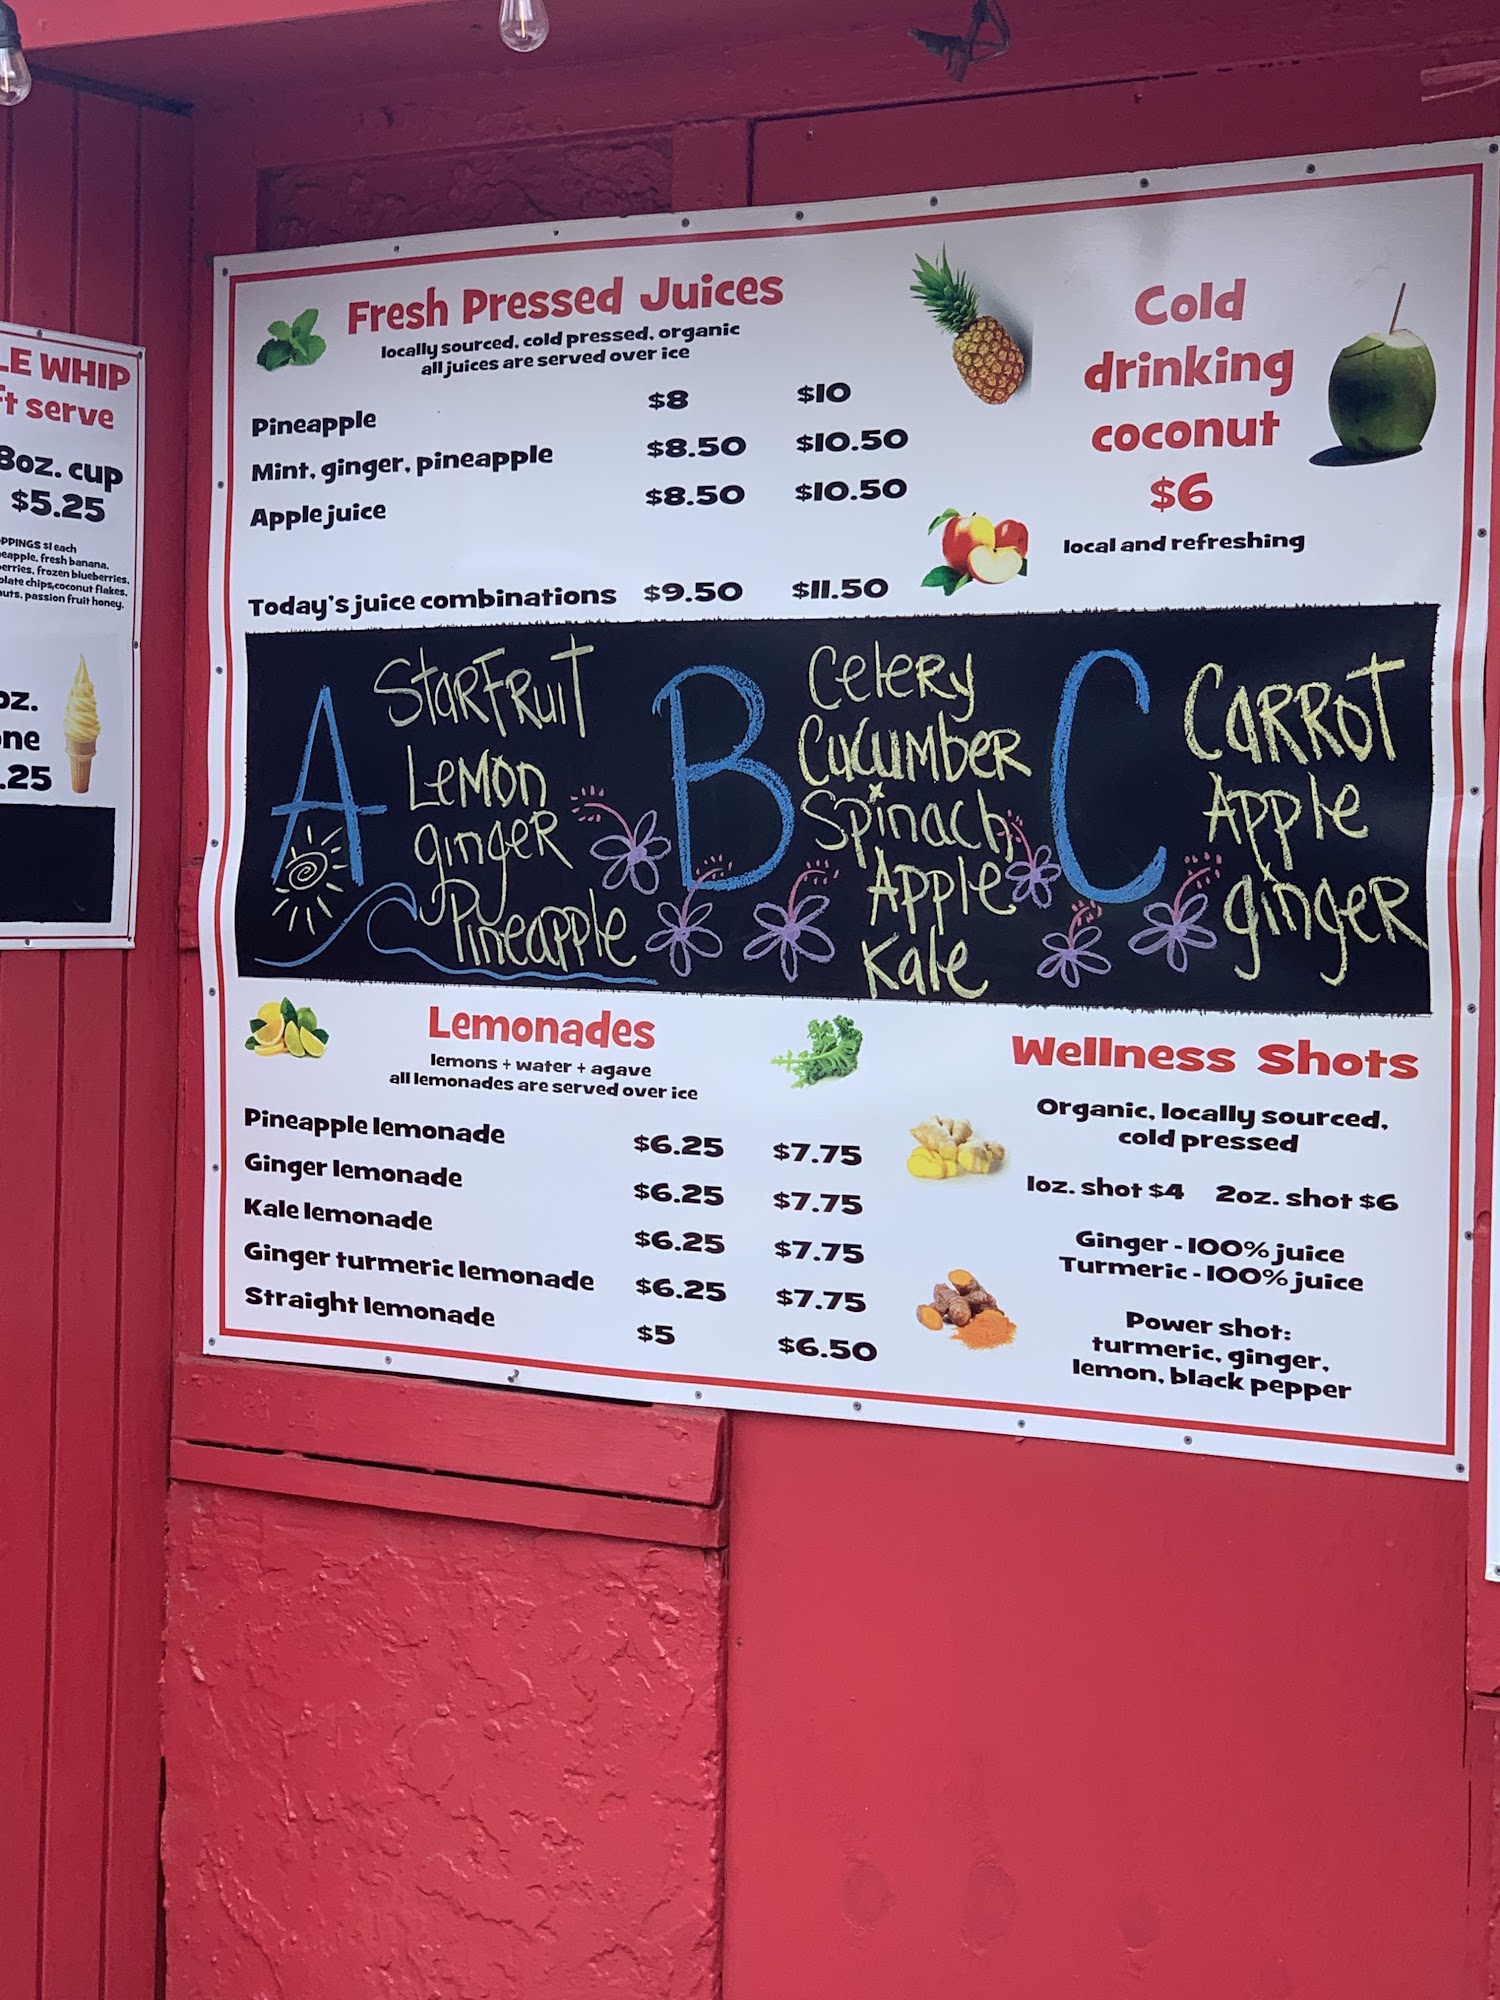 LE WHIP
ft serve
8oz. cup
$5.25
PPINGS $1 each
eapple, fresh banana,
erries, frozen blueberries,
olate chips, coconut flakes,
nuts, passion fruit honey.
oz.
one
.25
Fresh Pressed Juices
locally sourced, cold pressed, organic
all juices are served over ice
Pineapple $8 $10
Mint, ginger, pineapple $8.50 $10.50
Apple juice $8.50 $10.50
Today's juice combinations $9.50 $11.50
Cold
drinking
coconut
$6
local and refreshing
A
StarFruit
Lemon
ginger
Pineapple
B
Celery
Cucumber
Spinach
Apple
Kale
C
Carrot
Apple
ginger
Lemonades
lemons + water + agave
all lemonades are served over ice
Pineapple lemonade $6.25 $7.75
Ginger lemonade $6.25 $7.75
Kale lemonade $6.25 $7.75
Ginger turmeric lemonade $6.25 $7.75
Straight lemonade $5 $6.50
Wellness Shots
Organic, locally sourced,
cold pressed
1oz. shot $4 2oz. shot $6
Ginger - 100% juice
Turmeric - 100% juice
Power shot:
turmeric, ginger,
lemon, black pepper